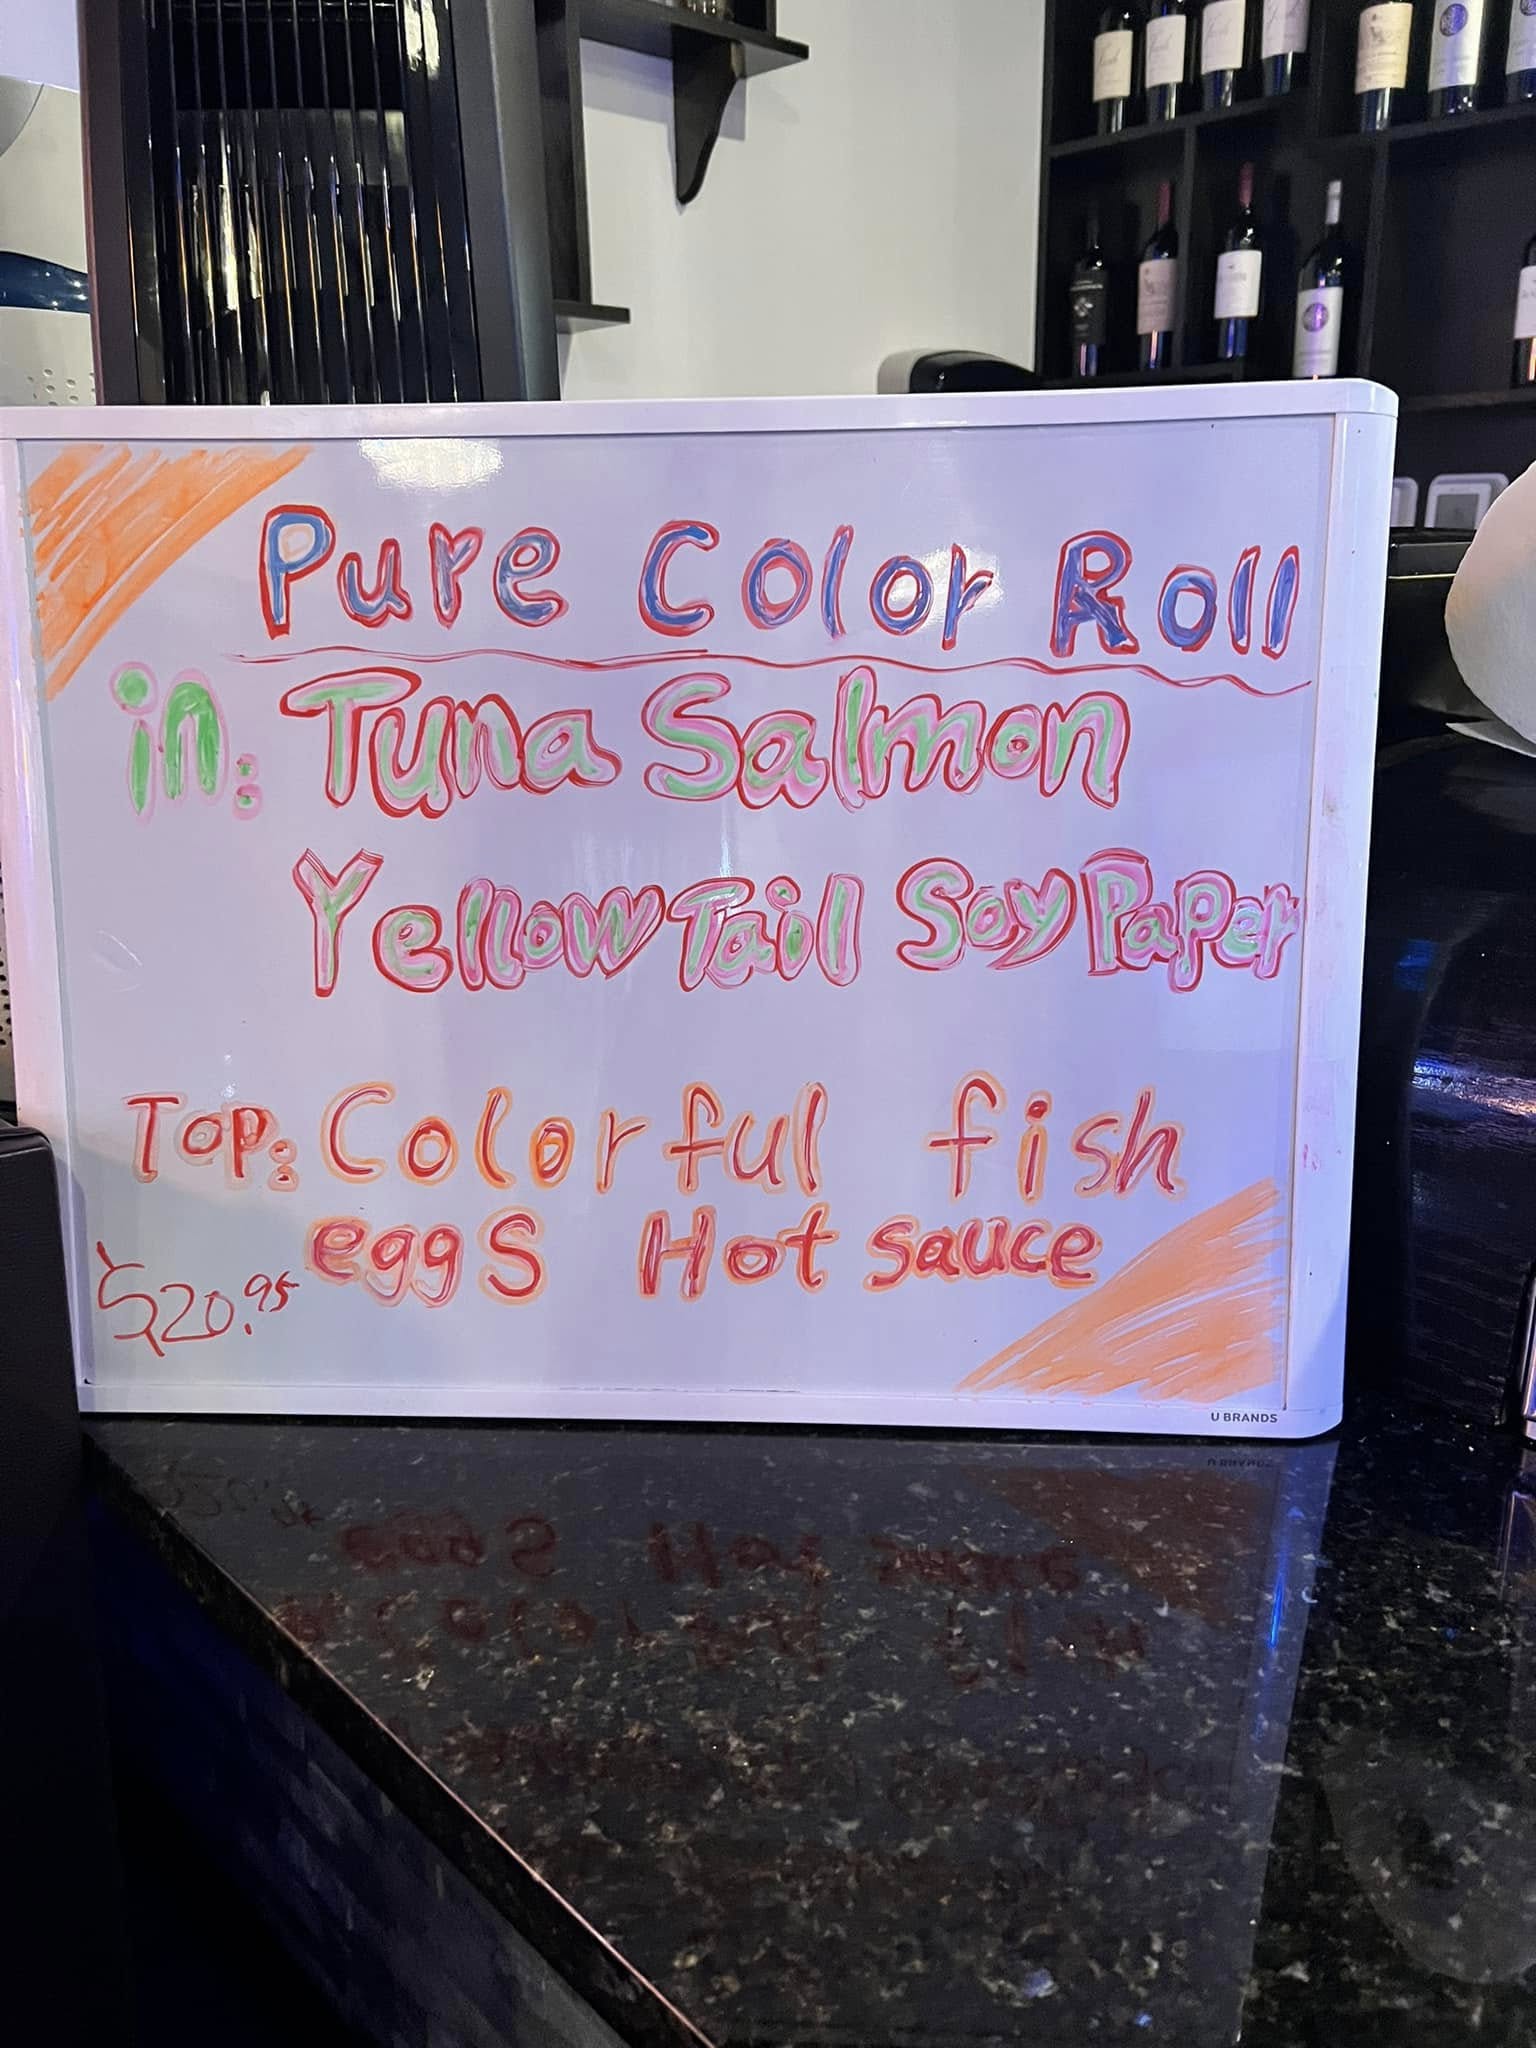 Pure Color Roll
in: Tuna Salmon
Yellow Tail Soy Paper
Top: Colorful fish
eggs Hot sauce
$20.95
U BRANDS